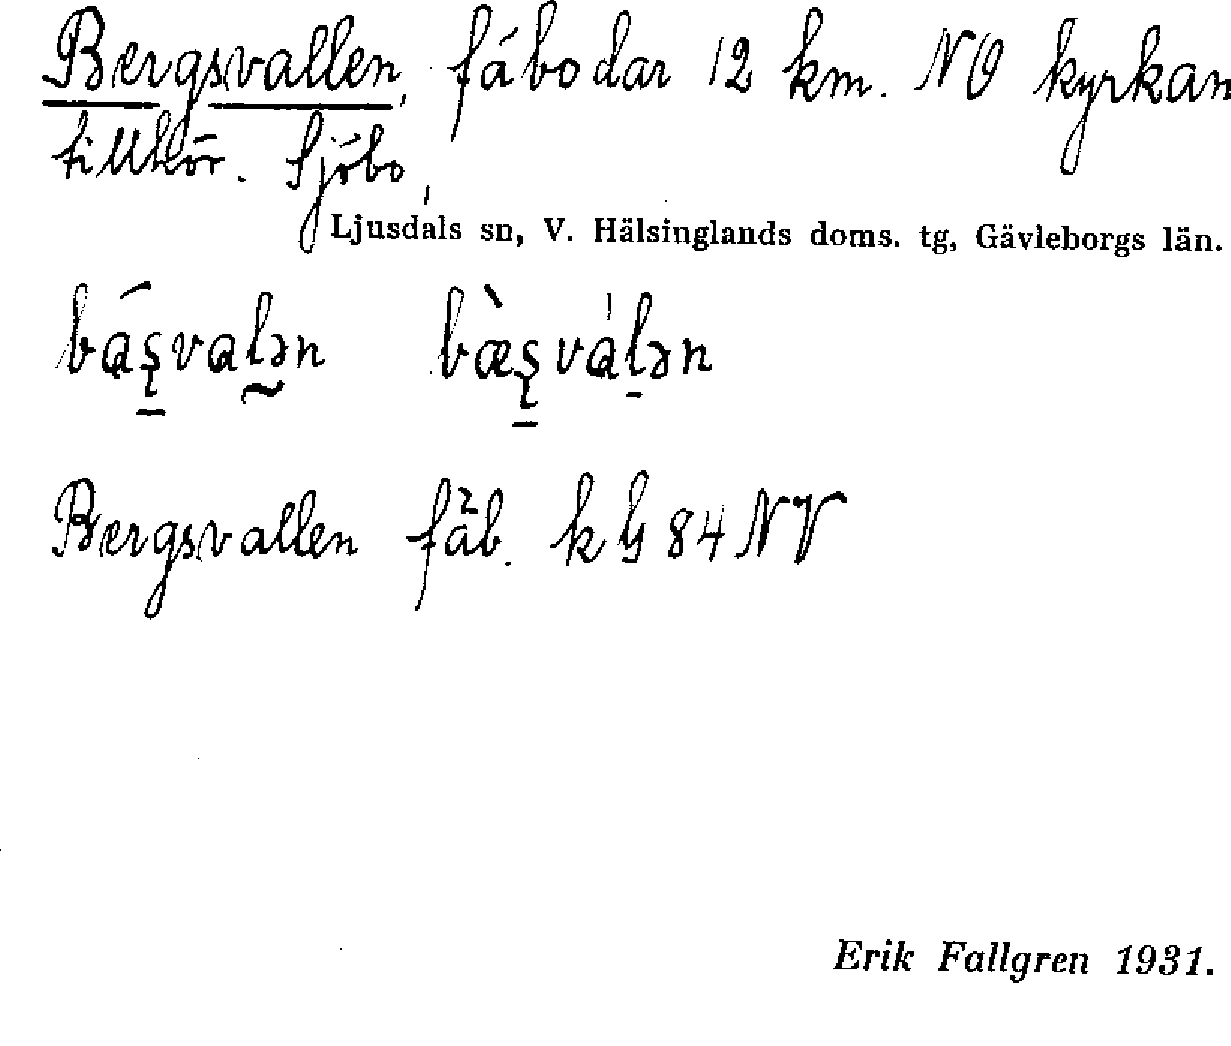 Bergsvallen, fåbodar 12 km. NO kyrkan
tillhör. Sjöbo,
Ljusdals sn, V. Hälsinglands doms. tg, Gävleborgs län.
Bergsvallen fäb. k G 84 NV
Erik Fallgren 1931.